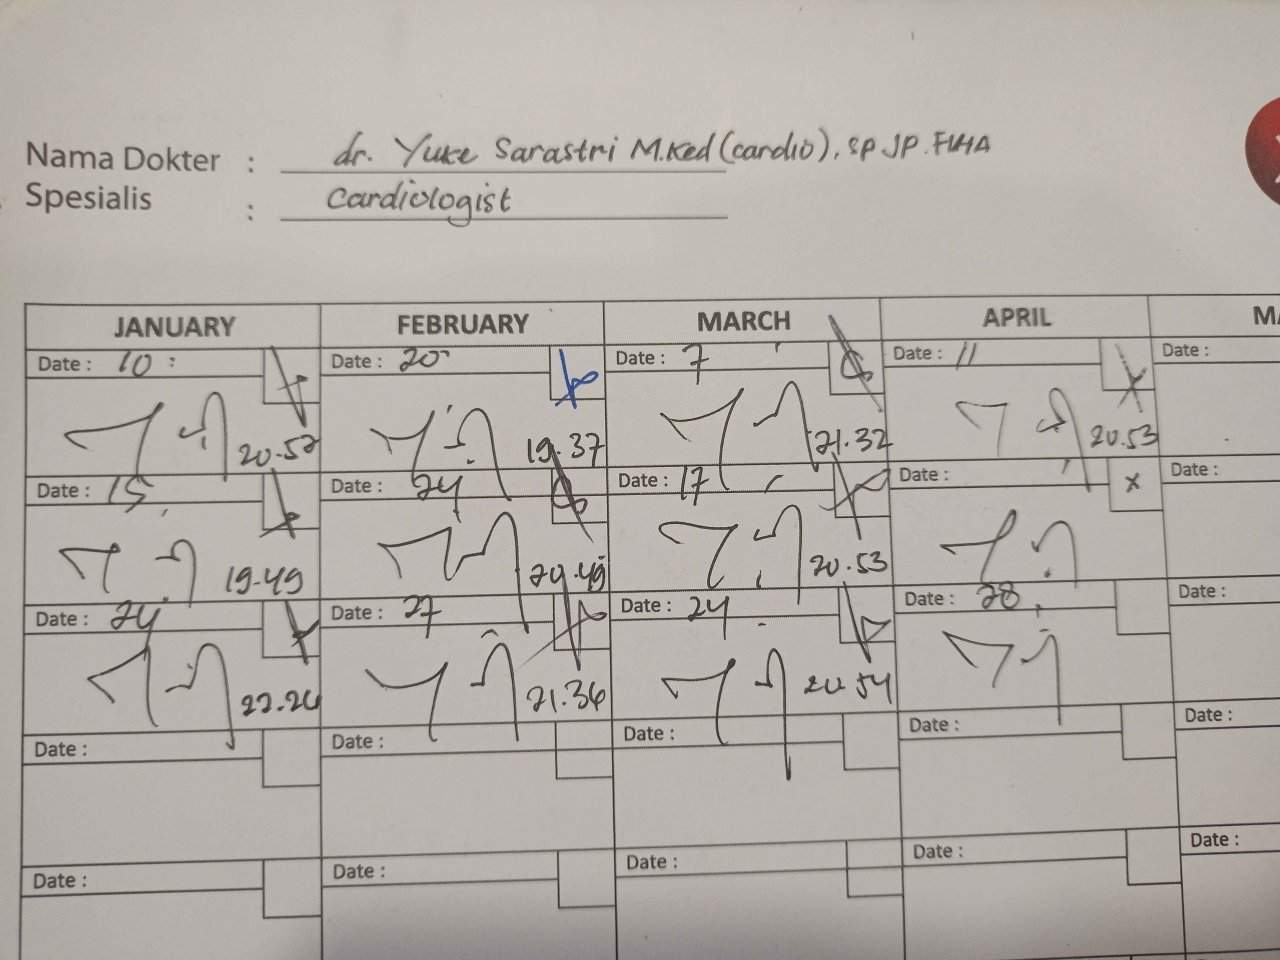 Nama Dokter : dr. Yuke Sarastri M.Ked (cardio), SP.JP.FIHA
Spesialis : Cardiologist
JANUARY FEBRUARY MARCH APRIL
Date : 10 Date : 20 Date : 7 Date : 11 Date :
20.52 19.37 21.32 20.53
Date : 15 Date : 24 Date : 17 Date : Date :
19.49 20.49 20.53
Date : 24 Date : 27 Date : 24 Date : 28 Date :
22.26 21.36 20.54
Date : Date : Date : Date : Date :
Date : Date : Date : Date : Date :